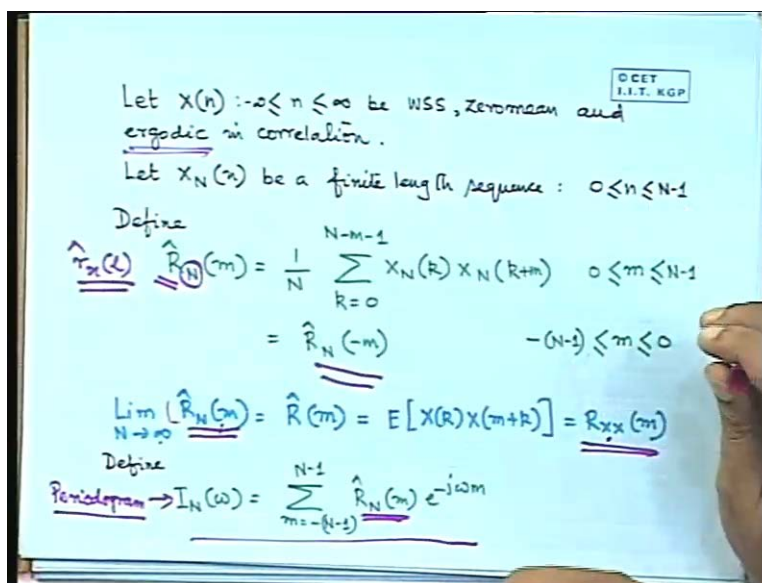 © CET
I.I.T. KGP
Let X(n) : -∞ ≤ n ≤ ∞ be WSS, zeromean and
ergodic in correlation.
Let X_N(n) be a finite length sequence : 0 ≤ n ≤ N-1
Define
r̂_x(l) R̂_N(m) = 1/N ∑_{k=0}^{N-m-1} X_N(k) X_N(k+m) 0 ≤ m ≤ N-1
= R̂_N(-m) -(N-1) ≤ m ≤ 0
Lim_{N→∞} R̂_N(m) = R̂(m) = E[X(k)X(m+k)] = R_XX(m)
Define
Periodogram → I_N(ω) = ∑_{m=-(N-1)}^{N-1} R̂_N(m) e^{-jωm}